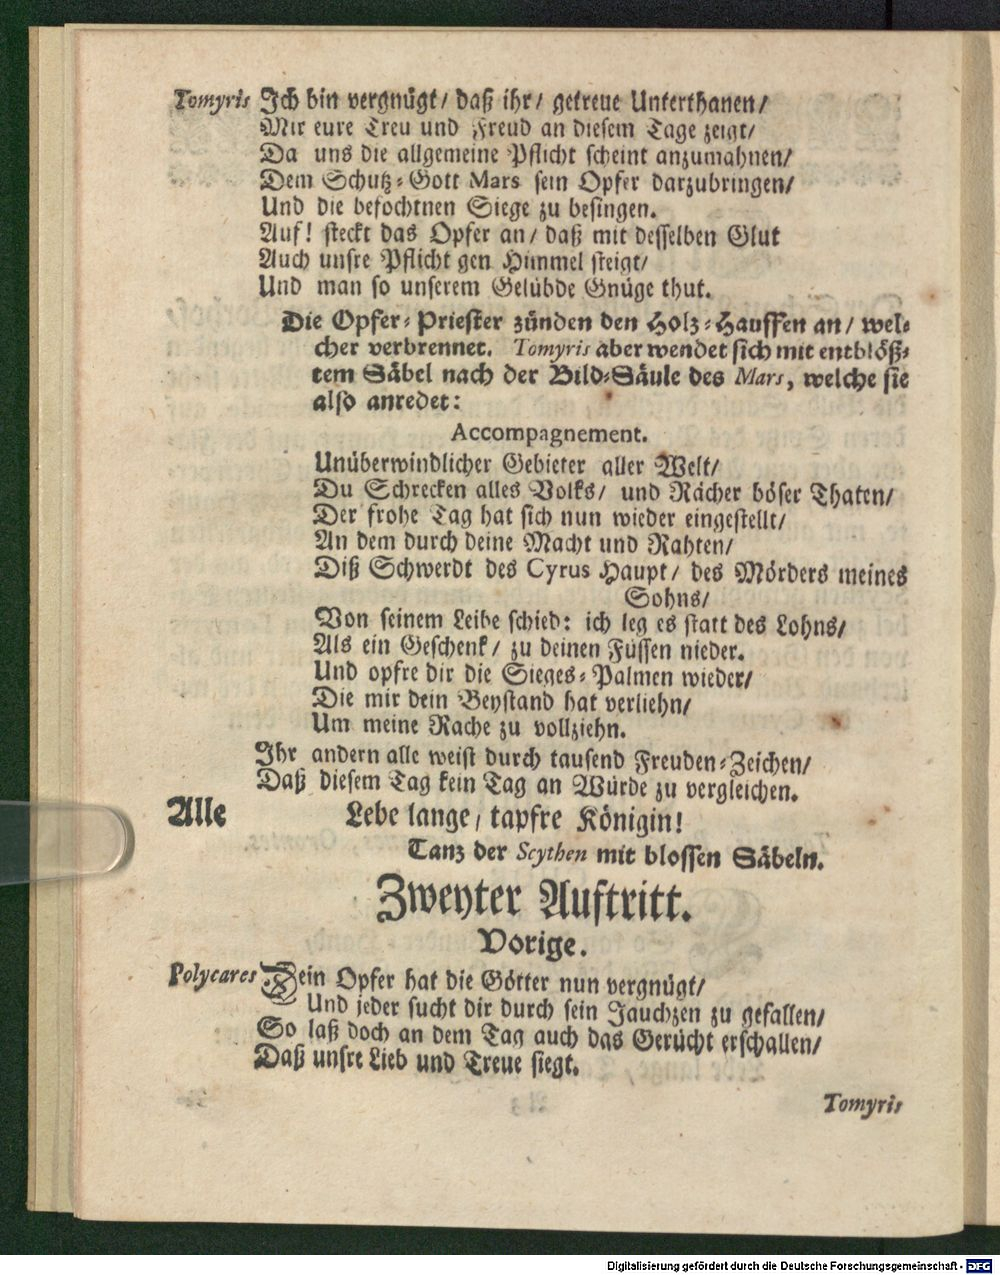 Tomyris Ich bin vergnügt/ daß ihr/ getreue Unterthanen/
Mir eure Treu und Freud an diesem Tage zeigt/
Da uns die allgemeine Pflicht scheint anzumahnen/
Dem Schutz-Gott Mars sein Opfer darzubringen/
Und die befochtnen Siege zu besingen.
Auf! steckt das Opfer an/ daß mit desselben Glut
Auch unsre Pflicht gen Himmel steigt/
Und man so unserem Gelübde Gnüge thut.
Die Opfer-Priester zünden den Holz-Hauffen an/ wel-
cher verbrennet. Tomyris aber wendet sich mit entblöß-
tem Säbel nach der Bild-Säule des Mars, welche sie
also anredet:
Accompagnement.
Unüberwindlicher Gebieter aller Welt/
Du Schrecken alles Volks/ und Rächer böser Thaten/
Der frohe Tag hat sich nun wieder eingestellt/
An dem durch deine Macht und Rahten/
Diß Schwerdt des Cyrus Haupt/ des Mörders meines
Sohns/
Von seinem Leibe schied: ich leg es statt des Lohns/
Als ein Geschenk/ zu deinen Füssen nieder.
Und opfre dir die Sieges-Palmen wieder/
Die mir dein Beystand hat verliehn/
Um meine Rache zu vollziehn.
Ihr andern alle weist durch tausend Freuden-Zeichen/
Daß diesem Tag kein Tag an Würde zu vergleichen.
Alle Lebe lange/ tapfre Königin!
Tanz der Scythen mit blossen Säbeln.
Zweyter Auftritt.
Vorige.
Polycares Dein Opfer hat die Götter nun vergnügt/
Und jeder sucht dir durch sein Jauchzen zu gefallen/
So laß doch an dem Tag auch das Gerücht erschallen/
Daß unsre Lieb und Treue siegt.
Tomyris
Digitalisierung gefördert durch die Deutsche Forschungsgemeinschaft - DFG